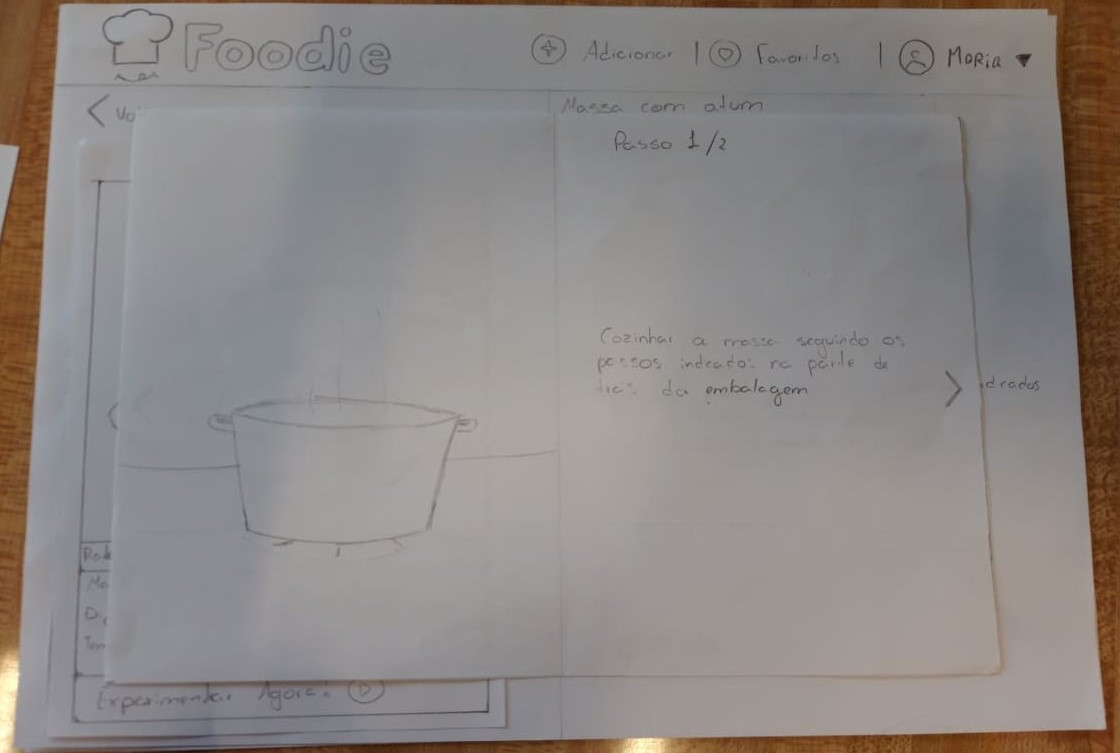 Foodie
Adicionar | Favoritos | Maria
Massa com atum
Passo 1/2
Cozinhar a massa seguindo os
passos indicados na parte de
trás da embalagem
Experimentar Agora!